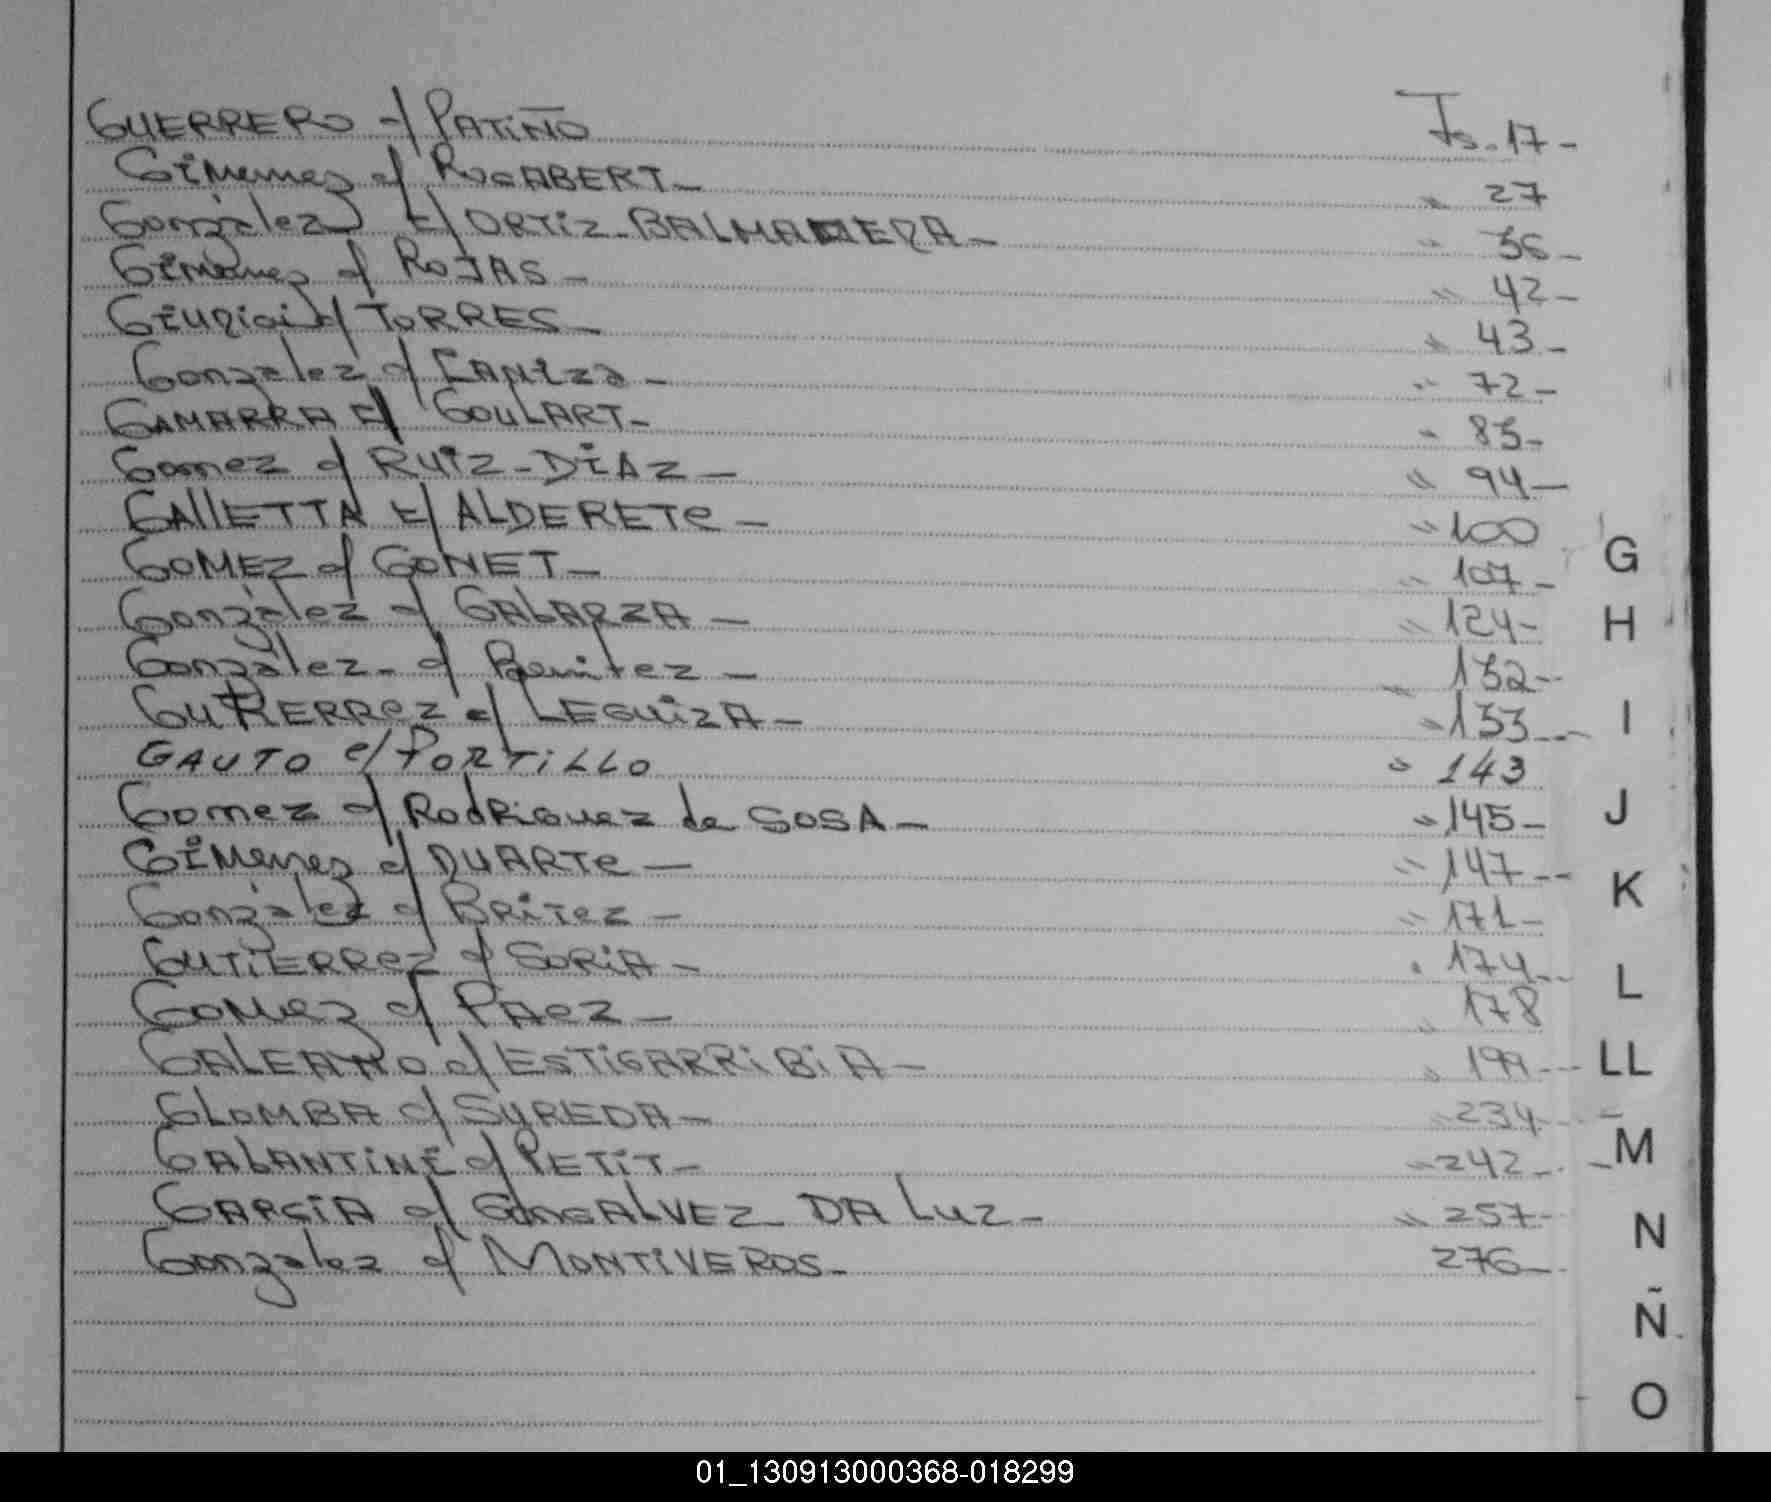 GUERRERO c/ PATIÑO Fs. 17-
Gimenez c/ ROCABERT- " 27
González c/ ORTIZ-BALMACEDA- " 36-
Gimenez c/ ROJAS- " 42-
c/ TORRES- " 43-
González c/ " 72-
GAMARRA c/ GOULART- " 85-
Gomez c/ RUIZ-DIAZ- " 94-
GALLETTA c/ ALDERETE- " 100
GOMEZ c/ GONET- " 107-
González c/ GALARZA- " 124-
González- c/ Benitez- " 132-
GUTIERREZ c/ LEGUIZA- " 133-
GAUTO c/ PORTILLO " 143
Gomez c/ RODRIGUEZ de SOSA- " 145-
GIMENEZ c/ DUARTE- " 147-
González c/ BRITEZ- " 171-
GUTIERREZ c/ SORIA- " 174-
GOMEZ c/ PAEZ- " 178
GALEANO c/ ESTIGARRIBIA- " 199-
GLOMBA c/ SUREDA- " 234-
GALANTINI c/ PETIT- " 242-
GARCIA c/ GONCALVEZ DA LUZ- " 257-
González c/ MONTIVEROS- 276-
G
H
I
J
K
L
LL
M
N
Ñ
O
01_130913000368-018299